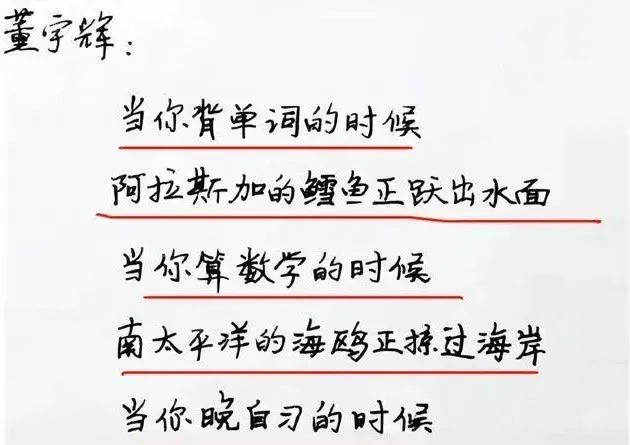 董宇辉:
当你背单词的时候
阿拉斯加的鳕鱼正跃出水面
当你算数学的时候
南太平洋的海鸥正掠过海岸
当你晚自习的时候